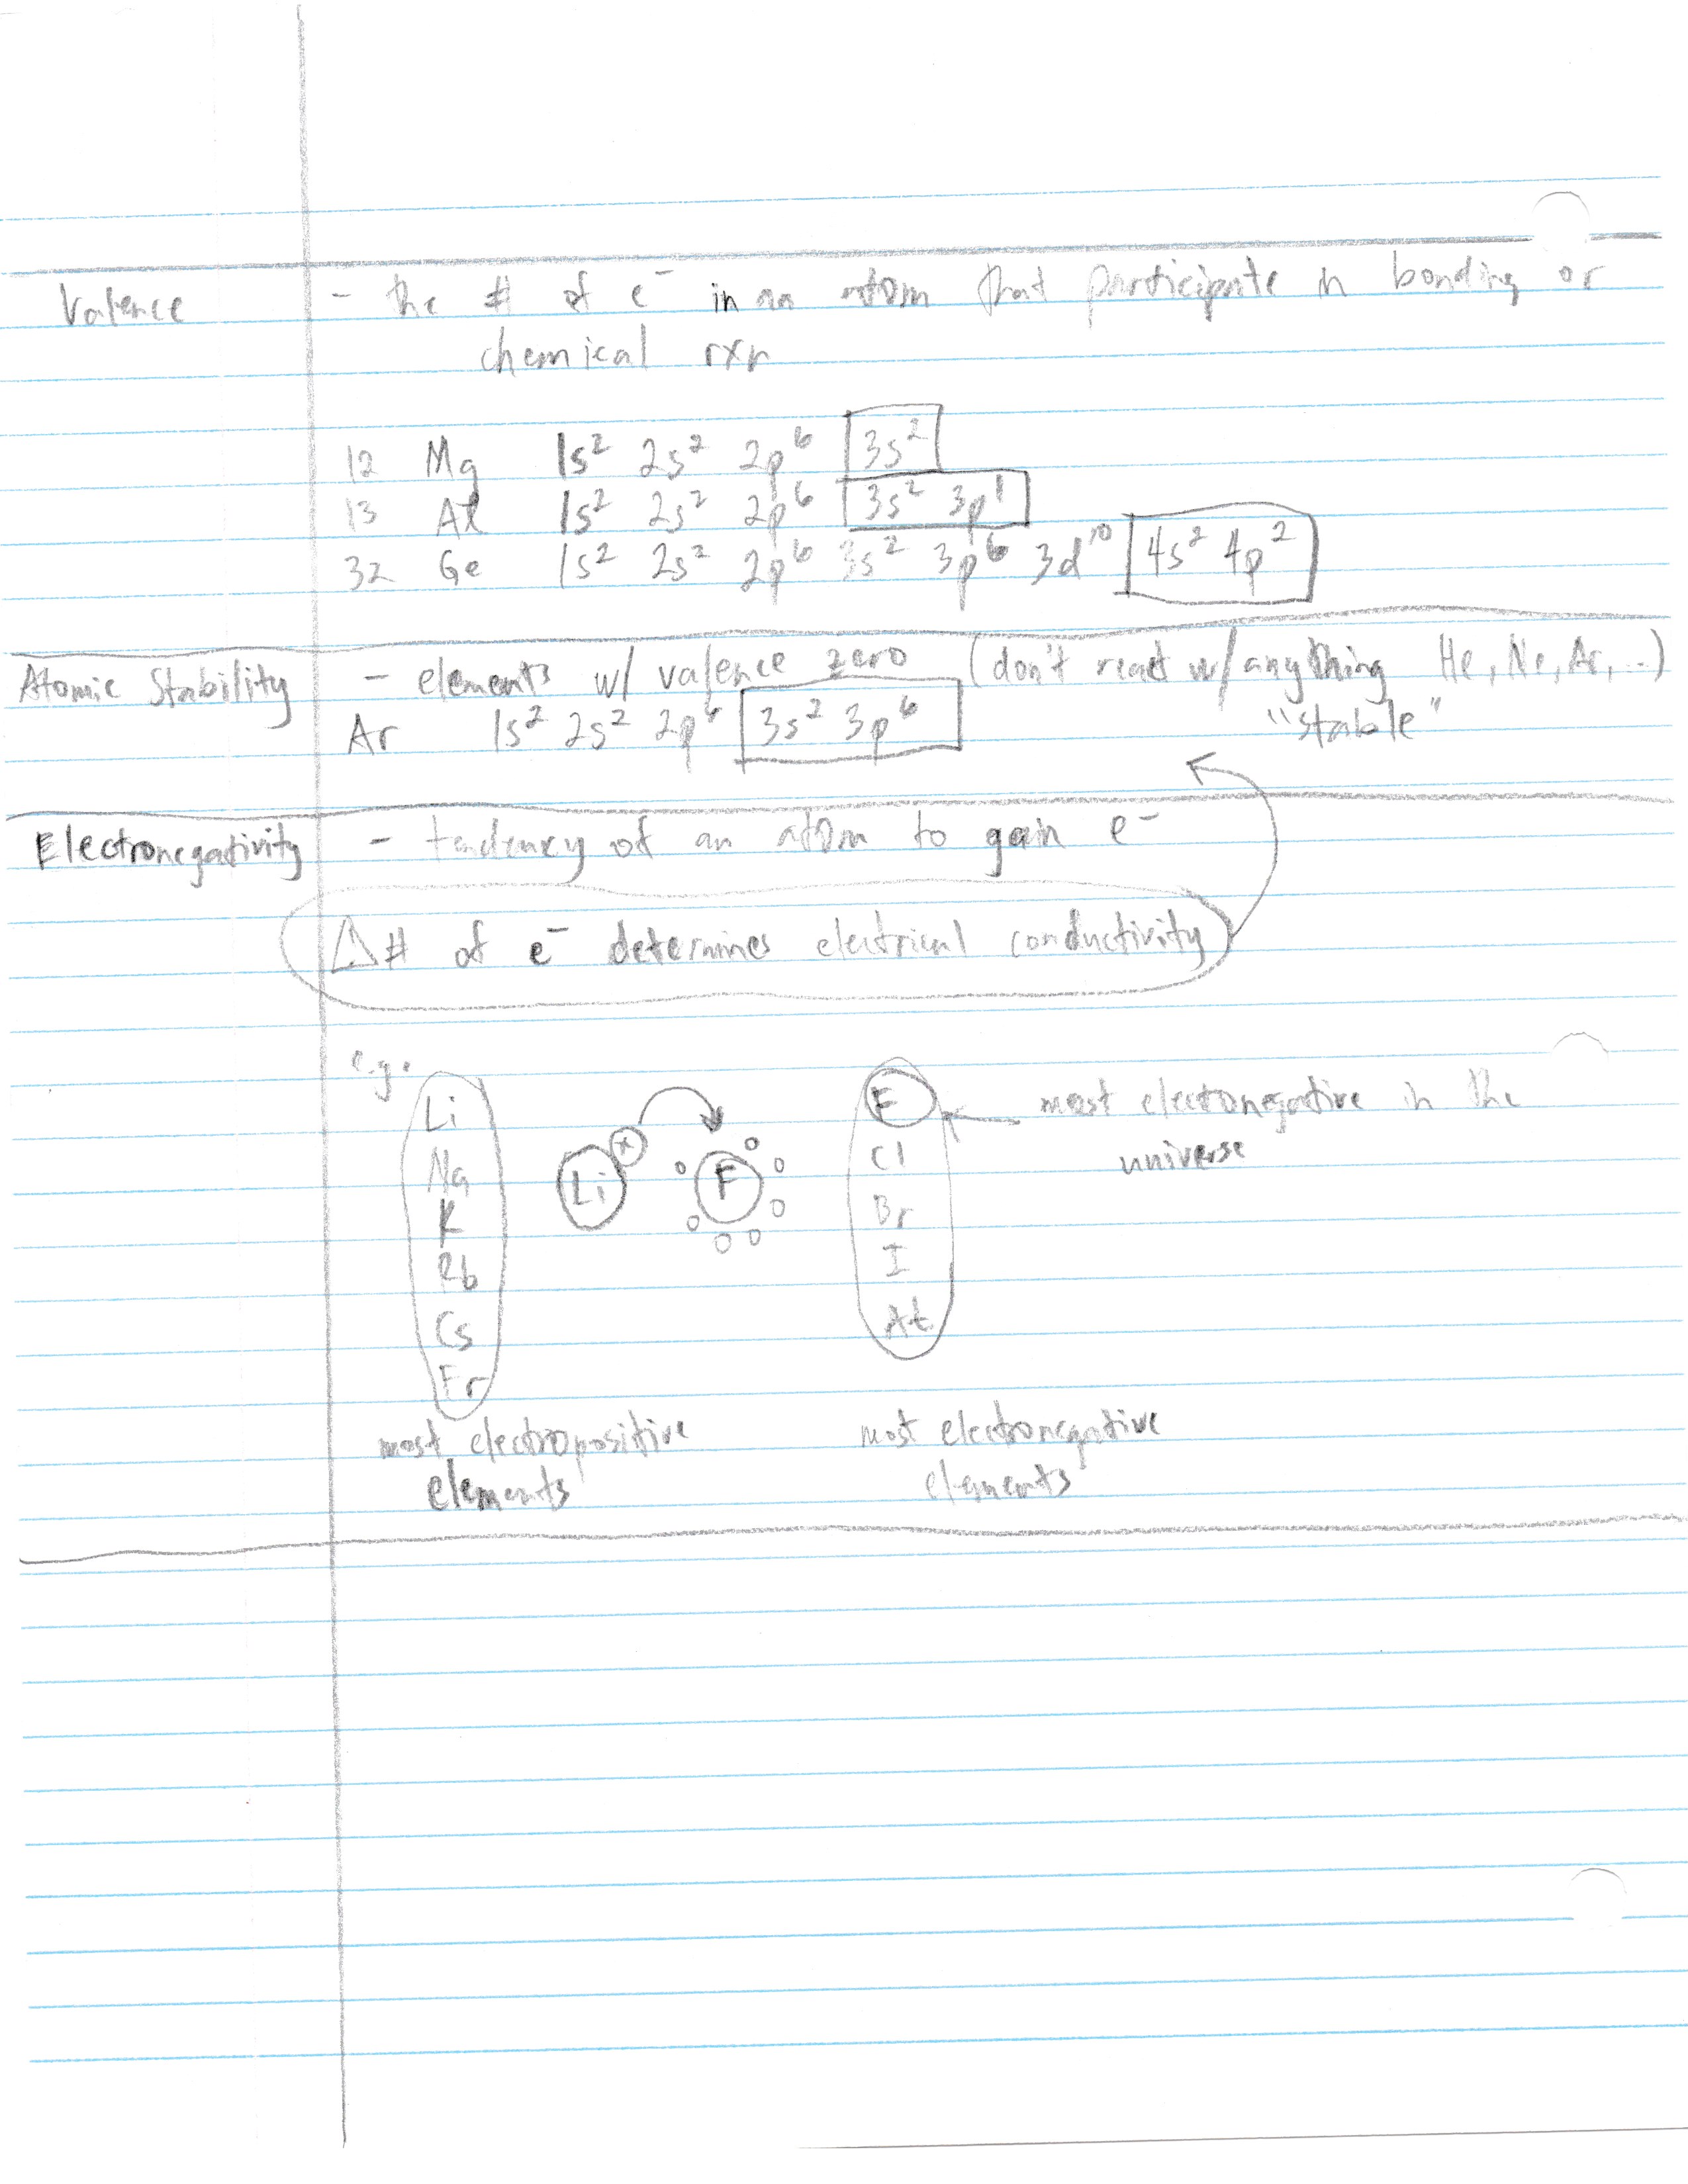 Valence - the # of e⁻ in an atom that participate in bonding or
chemical rxn
12 Mg 1s² 2s² 2p⁶ 3s²
13 Al 1s² 2s² 2p⁶ 3s² 3p¹
32 Ge 1s² 2s² 2p⁶ 3s² 3p⁶ 3d¹⁰ 4s² 4p²
Atomic Stability - elements w/ valence zero (don't react w/ anything He, Ne, Ar, ...)
Ar 1s² 2s² 2p⁶ 3s² 3p⁶ "stable"
Electronegativity - tendency of an atom to gain e⁻
Δ# of e⁻ determines electrical conductivity
e.g.
Li
Na
K
Rb
Cs
Fr
most electropositive
elements
Li x F
F
Cl
Br
I
At
most electronegative
elements
most electronegative in the
universe